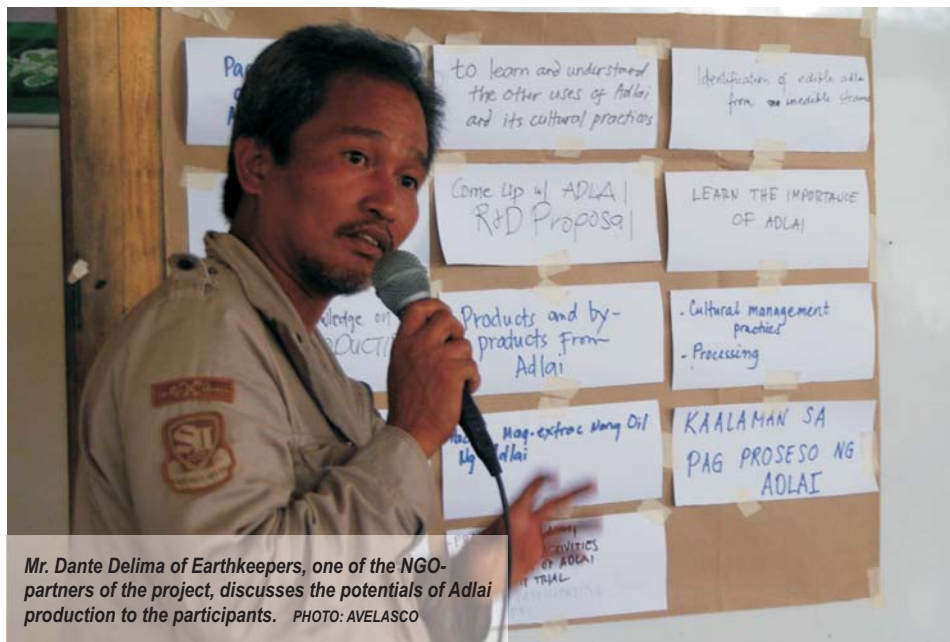 to learn and understand
the other uses of Adlai
and its cultural practices
Identification of edible adlai
from inedible strains
Come Up w/ ADLAI
R&D Proposal
LEARN THE IMPORTANCE
OF ADLAI
Products and by-
products From
Adlai
- Cultural management
practices
- Processing
Mag-extrac Nang Oil
Ng Adlai
KAALAMAN SA
PAG PROSESO NG
ADLAI
OF ADLAI
TRIAL
Mr. Dante Delima of Earthkeepers, one of the NGO-
partners of the project, discusses the potentials of Adlai
production to the participants. PHOTO: AVELASCO